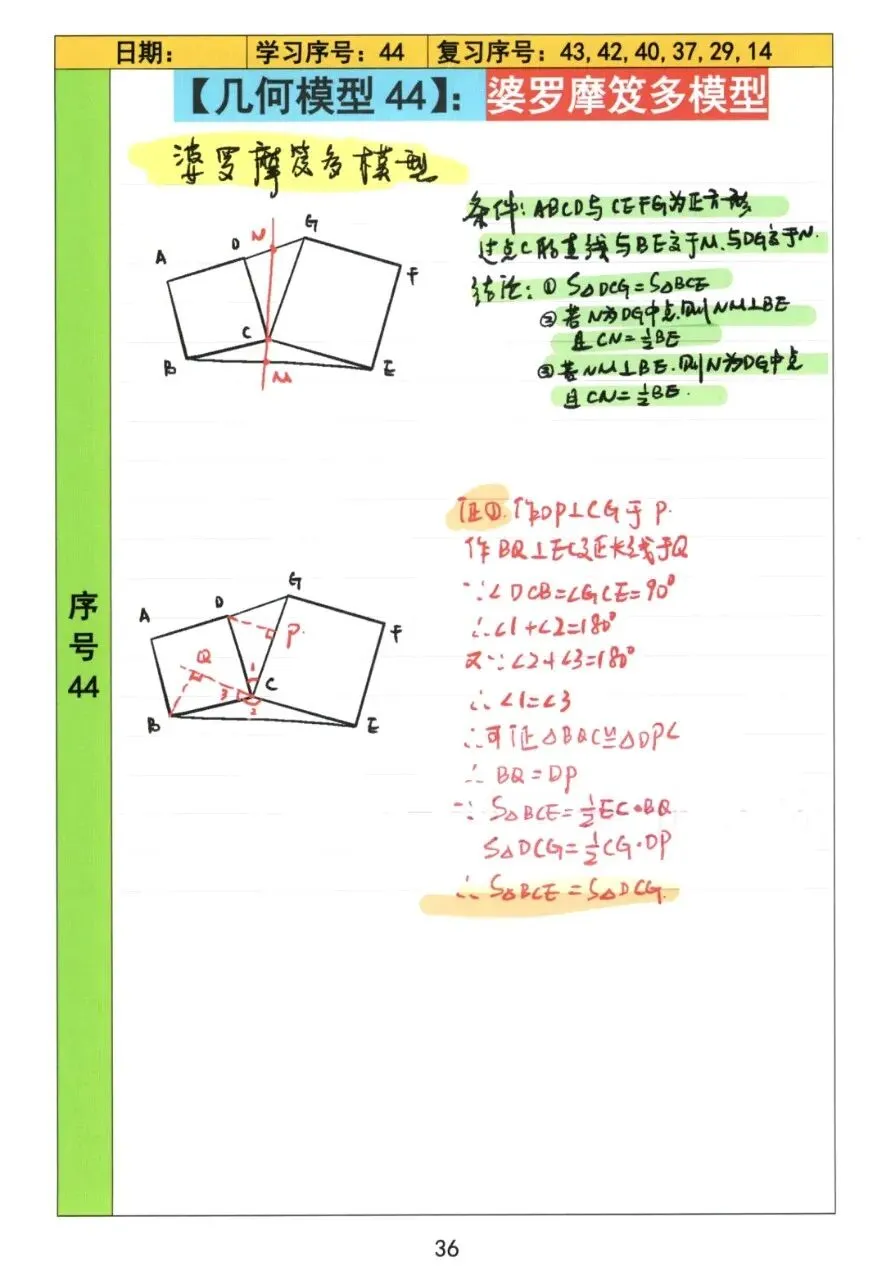 日期： 学习序号：44 复习序号：43, 42, 40, 37, 29, 14
【几何模型 44】：婆罗摩笈多模型
婆罗摩笈多模型
条件：ABCD与CEFG为正方形
过点C的直线与BE交于M，与DG交于N.
结论：① S△DCG=S△BCE
② 若N为DG中点，则NM⊥BE
且CN=½BE
③ 若NM⊥BE，则N为DG中点
且CN=½BE.
A
D
N
G
F
C
B
M
E
序号44
证①. 作DP⊥CG于P.
作BQ⊥EC延长线于Q
∵∠DCB=∠GCE=90°
∴∠1+∠2=180°
又∵∠2+∠3=180°
∴∠1=∠3
∴可证△BQC≌△DPC
∴BQ=DP
∵S△BCE=½EC·BQ
S△DCG=½CG·DP
∴S△BCE=S△DCG.
A
D
G
P
F
Q
1
C
3
2
B
E
36